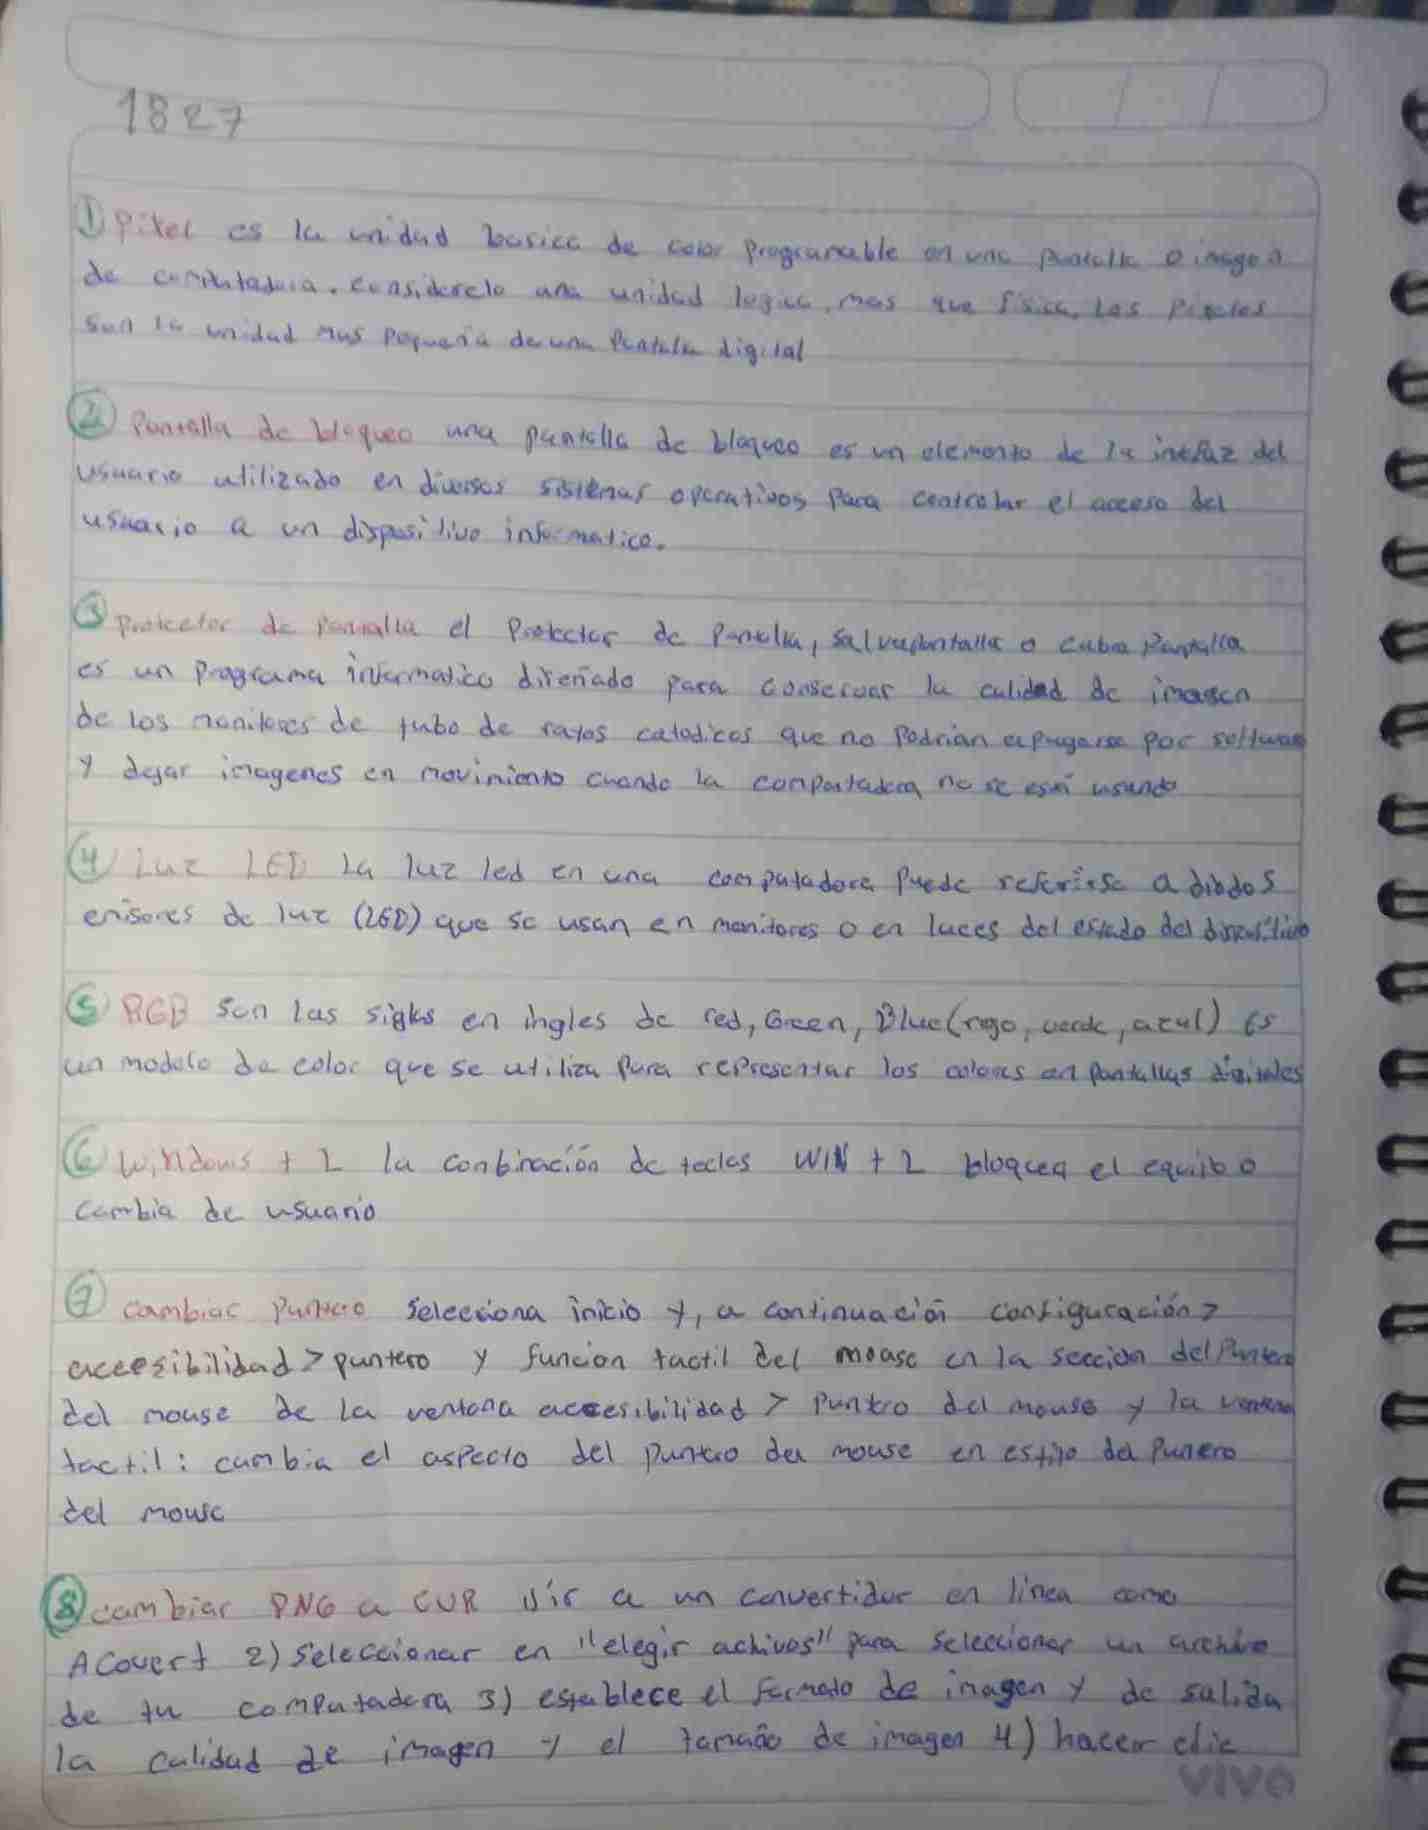 1827
① Pixel es la unidad basica de color programable en una pantalla o imagen
de computadora. considerelo una unidad logica, mas que fisica. Los pixeles
son la unidad mas pequeña de una pantalla digital
② Pantalla de bloqueo una pantalla de bloqueo es un elemento de la intefaz del
usuario utilizado en diversos sistemas operativos para controlar el acceso del
usuario a un dispositivo informatico.
③ protector de pantalla el protector de pantalla, salvapantalla o cubre pantalla
es un programa informatico diseñado para conservar la calidad de imagen
de los monitores de tubo de rayos catodicos que no podrian apagarse por software
y dejar imagenes en movimiento cuando la no se está usando
④ Luz LED La luz led en una computadora puede referirse a diodos
emisores de luz (LED) que se usan en monitores o en luces del estado del dispositivo
⑤ RGB son las siglas en ingles de red, Green, Blue (rojo, verde, azul) es
un modelo de color que se utiliza para representar los colores en pantallas digitales
⑥ Windows + L la conbinación de teclas WIN + L bloquea el equipo o
cambia de usuario
⑦ cambiar puntero selecciona inicio y, a continuación configuración >
accesibilidad > puntero y funcion tactil del mouse en la seccion del puntero
del mouse de la ventana accesibilidad > puntro del mouse y la ventana
tactil: cambia el aspecto del puntero del mouse en estilo del puntero
del mouse
⑧ cambiar PNG a CUR 1) ir a un convertidor en linea como
Acovert 2) seleccionar en "elegir achivos" para seleccionar un archivo
de tu computadora 3) establece el formato de imagen y de salida
la calidad de imagen y el tamaño de imagen 4) hacer clic
vivo